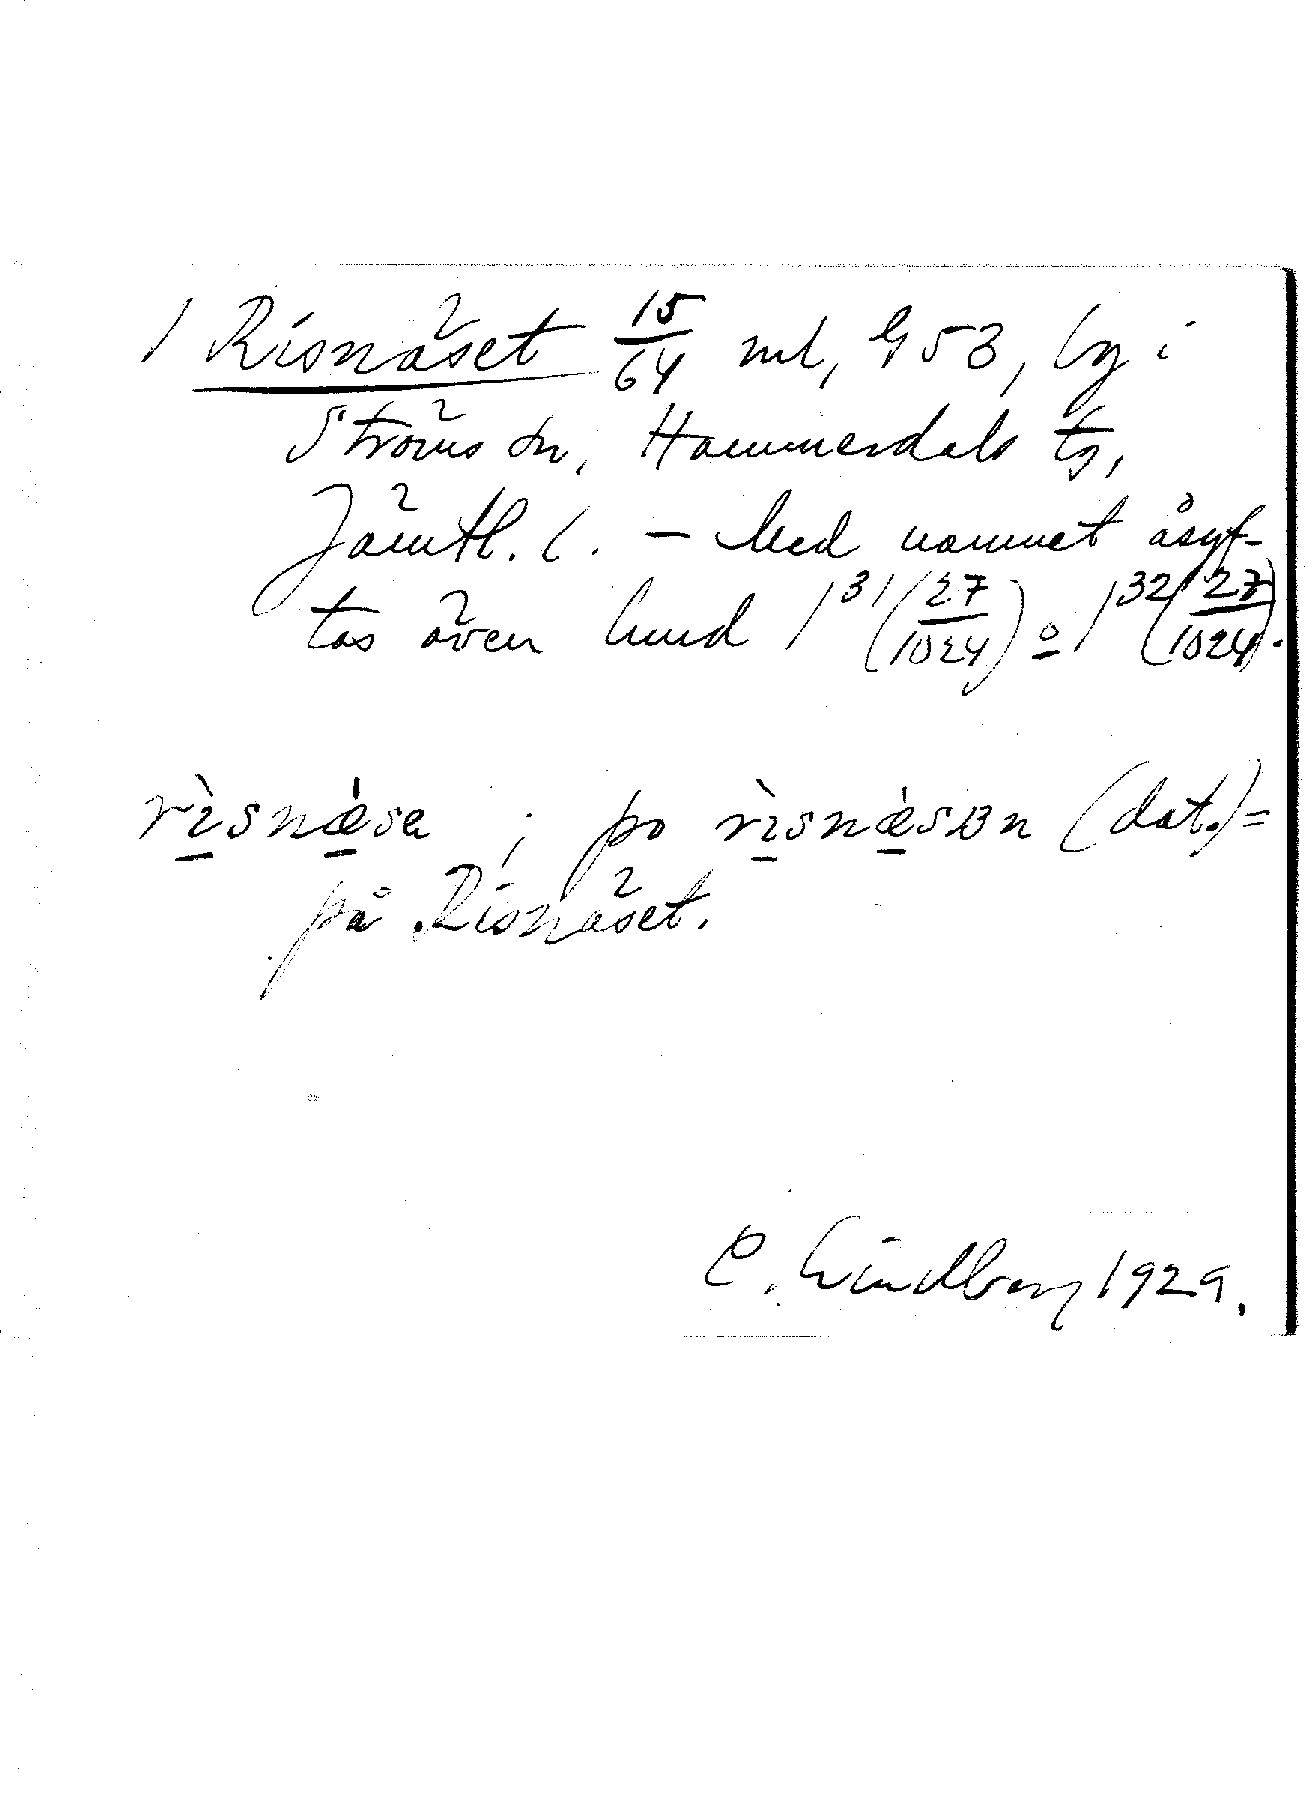 1 Risnäset 15/64 mtl, G 53, by i
Ströms sn, Hammerdals tg,
Jämtl. l. – Med namnet åsyf-
tas även hmd 1³¹ (27/1024) o 1³² (27/1024).
rìsnæ̀sa ; po rìsnæ̀sʙn (dat.) =
på Risnäset.
C. Lindberg 1929.